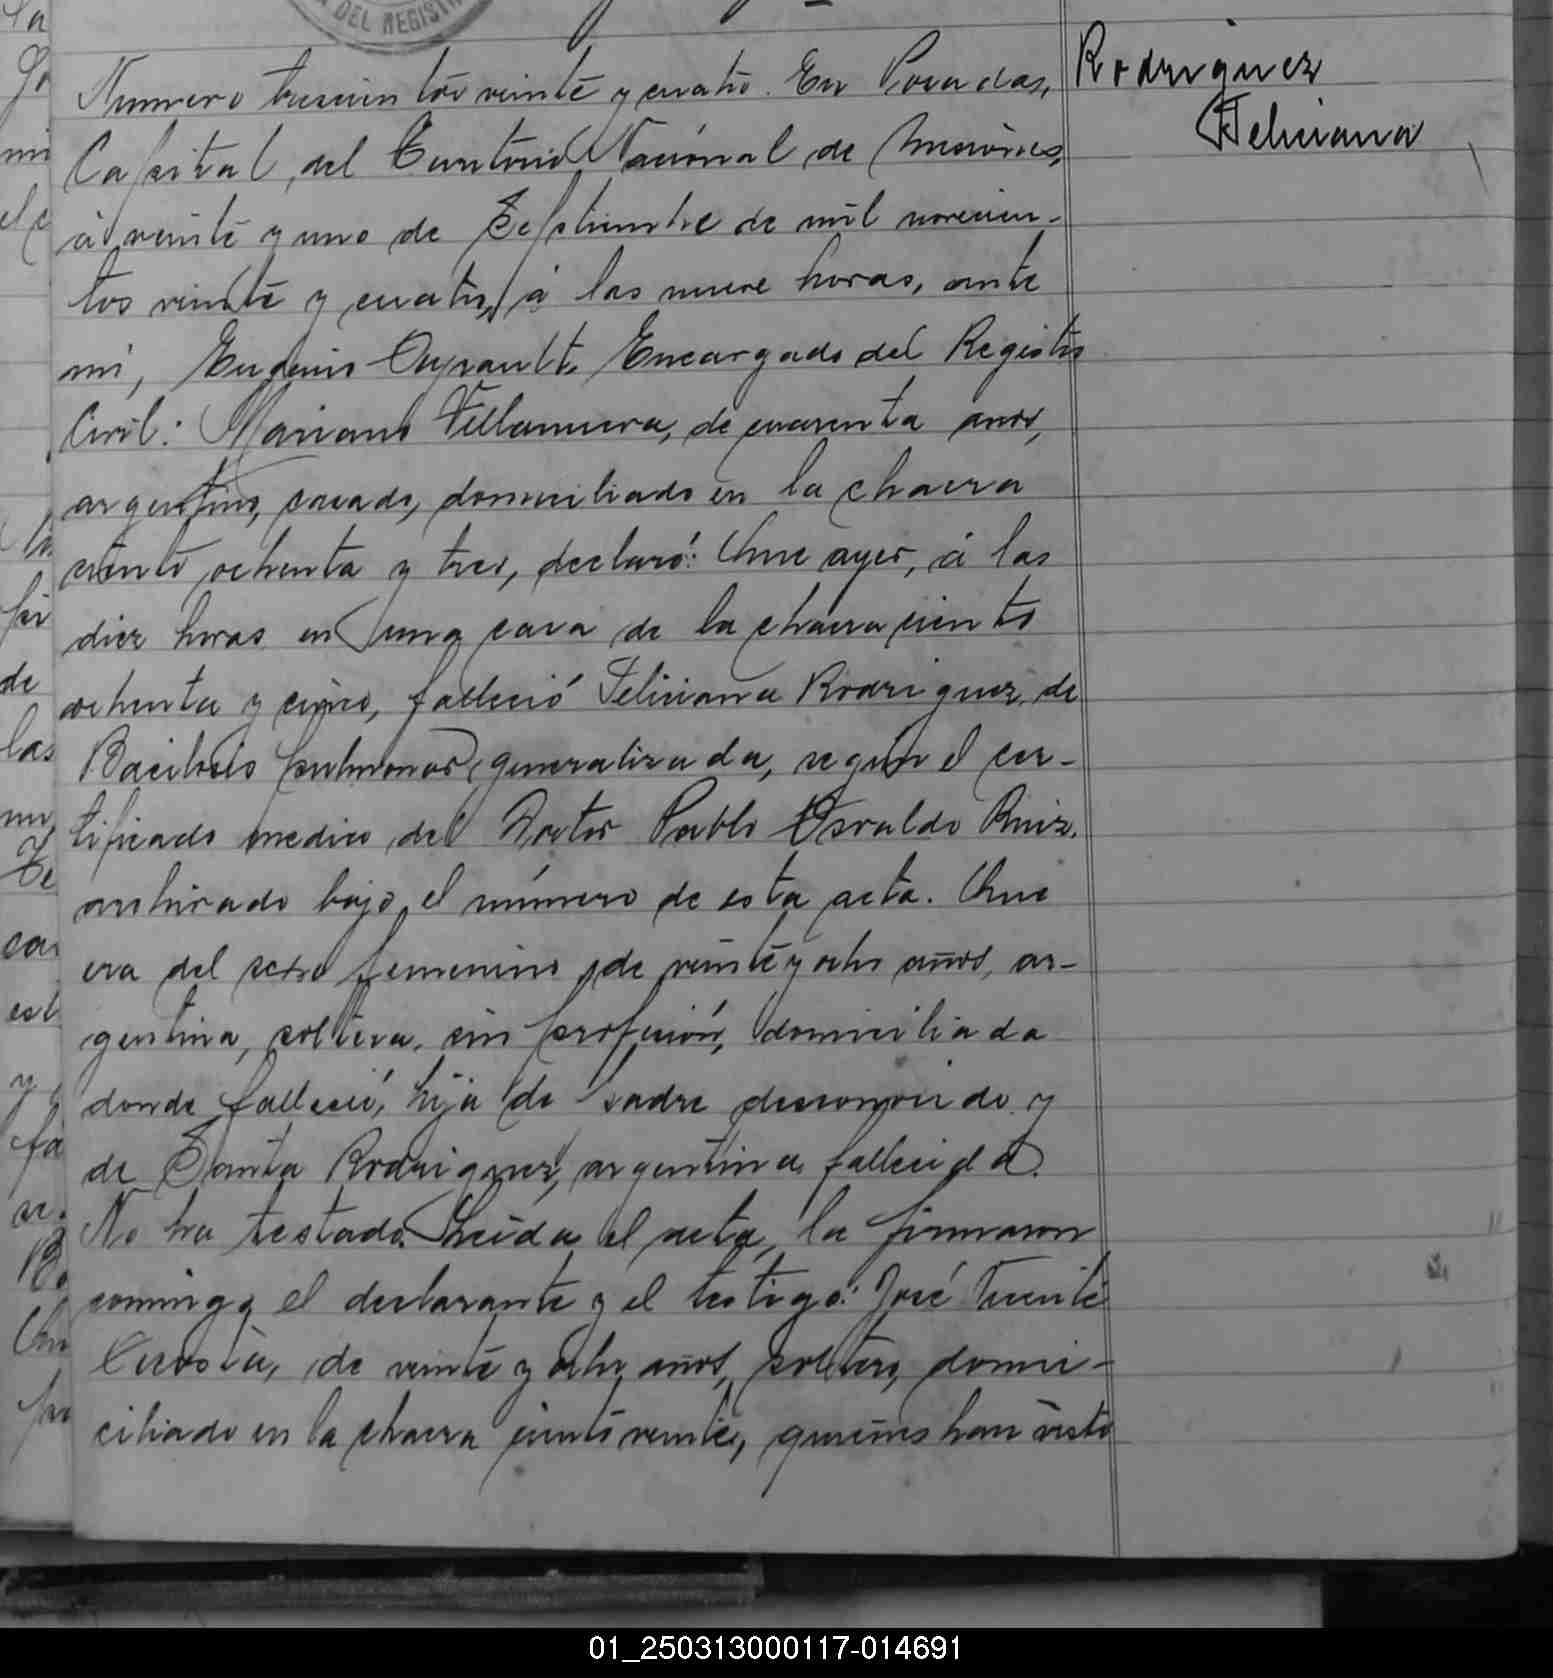 DEL REGIST
Rodriguez
Feliciana
Numero trescientos veinte y cuatro. En Posadas,
Capital, del Territorio Nacional de Misiones,
á veinte y uno de Septiembre de mil novecien-
tos veinte y cuatro, á las nueve horas, ante
mi, Eugenio Encargado del Registro
Civil: Mariano Villanueva, de cuarenta años,
argentino, casado, domiciliado en la chacra
ciento ochenta y tres, declaró: Que ayer, á las
diez horas en una casa de la chacra ciento
ochenta y cinco, falleció Feliciana Rodriguez, de
Bacilosis pulmonar generalizada, según el cer-
tificado medico del Doctor Pablo Osvaldo Ruiz,
archivado bajo el número de esta acta. Que
era del sexo femenino, de veinte y ocho años, ar-
gentina, soltera, sin profesión, domiciliada
donde falleció, hija de padre desconocido y
de Santa Rodriguez, argentina, fallecida.
No ha testado. Leída el acta, la firmaron
conmigo, el declarante y el testigo: José Vicente
Acosta, de veinte y ocho años, soltero, domi-
ciliado en la chacra ciento veinte, quienes han visto
01_250313000117-014691